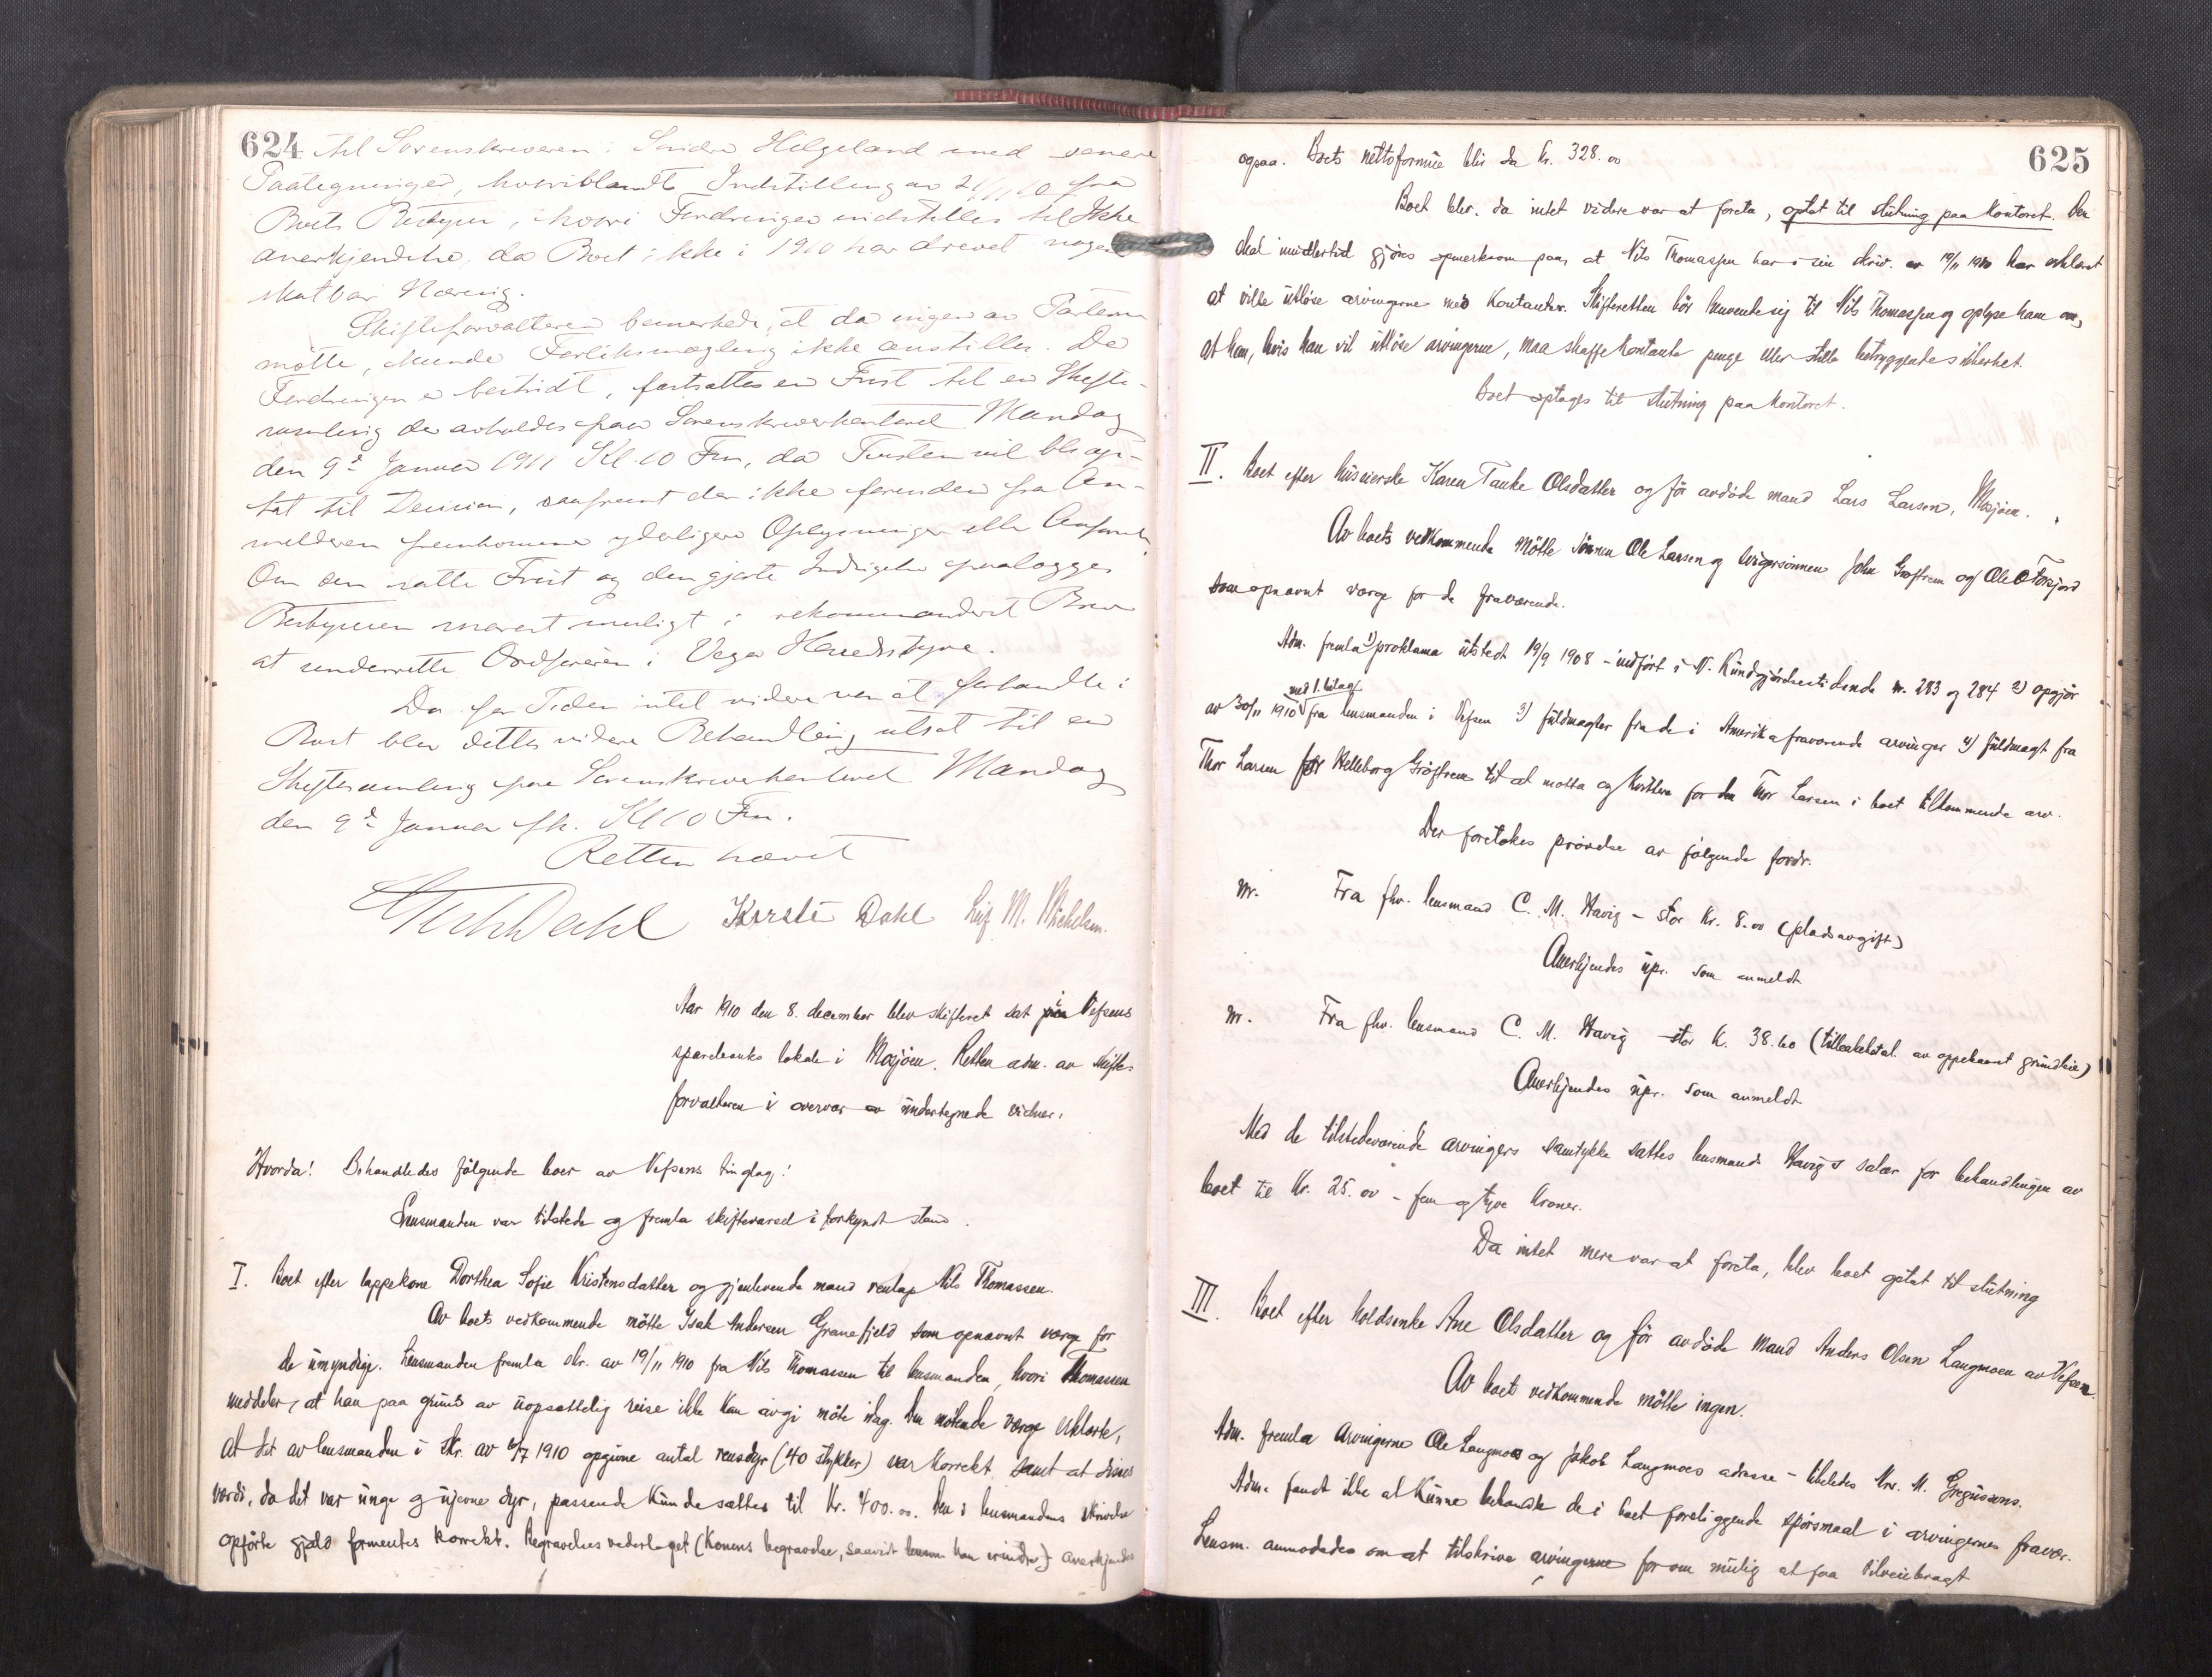 624
til Sorenskriveren i Søndre Helgeland med senere
Paategninger, hvoriblandt Indstilling av 21/11 10 fra
Boets Bestyrer, hvori Fordringen indstilles til Ikke
anerkjendelse, da Boet ikke i 1910 har drevet nogen
skatbar Næring.
Skifteforvalteren bemerkede, at da ingen av Parterne
mötte, kunde Forliksmægling ikke anstilles. Da
Fordringen er bestridt, fortsattes en Frist til en Skifte-
samling der avholdes paa Sorenskriverkontoret Mandag
den 9de Januar 1911 Kl. 10 Fm, da Tvisten vil bli op-
tat til Decision, saafremt der ikke forinden fra An-
melderen fremkommer yderligere Oplysninger eller
Om den satte Frist og den gjorte Indsigelse paalægges
Bestyreren snarest muligt i rekommanderet Brev
at underrette Ordføreren i Vega Herredsstyre.
Da for Tiden intet videre var at forhandle i
Boet blev dettes videre Behandling utsat til en
Skiftesamling paa Sorenskriverkontoret Mandag
den 9de Januar Kl 10 Fm.
Retten hævet
Dahl Kirsti Dahl Leif M. Michelsen.
Aar 1910 den 8. december blev skifteret sat i Vefsens
sparebanks lokale i Mosjöen. Retten adm. av skifte-
forvalteren i overvær av undertegnede vidner.
Hvorda! Behandledes fölgende boer av Vefsens tinglag:
Lensmanden var tilstede og fremla skiftevarsel i forkyndt stand.
I. Boet efter lappekone Dorthea Sofie Kristensdatter og gjenlevende mand Nils Thomassen.
Av boets vedkommende mötte Isak Andersen Granefjeld som opnævnt verge for
de umyndige. Lensmanden fremla skr. av 19/11 1910 fra Nils Thomassen til lensmanden, hvori Thomassen
meddeler, at han paa grund av uopsættelig reise ikke kan avgi möte idag. Den mötende verge erklærte,
at det av lensmanden i skr. av 6/7 1910 opgivne antal rensdyr (40 stykker) var korrekt samt at disses
værdi, da det var unge og ujevne dyr, passende kunde sættes til Kr. 400.00. Den i lensmandens skrivelse
opförte gjæld formentes korrekt. Begravelses vederlaget (Konens begravelse, saavidt han erindrer) anerkjendes
625
ogsaa. Boets nettoformue blir da kr. 328.00
Boet blev, da intet videre var at foreta, optat til slutning paa kontoret. Der
skal imidlertid gjöres opmerksom paa, at Nils Thomassen har i sin skriv. av 19/11 1910 har erklært
at ville utlöse arvingerne med kontanter. Skifteretten bör henvende sig til Nils Thomassen og oplyse ham om,
at han, hvis han vil utlöse arvingerne, maa skaffe kontante penge eller stille betryggende sikkerhet.
Boet optages til slutning paa kontoret.
II. Boet efter huseierske Karen Tanke Olsdatter og för avdöde mand Lars Larsen, Mosjöen.
Av boets vedkommende mötte sönnen Ole Larsen og svigersönnen John Gröftrem og Ole O Forsjord
som opnævnt verge for de fraværende.
Adm. fremla 1) proklama utstedt 19/9 1908 – indfört i N. Kundgjörelsestidende nr. 283 og 284 2) opgjör
av 30/11 1910 med 1. bilag fra lensmanden i Vefsen 3) fuldmagter fra de i Amerika fraværende arvinger 4) fuldmagt fra
Thor Larsen for Helleborg Gröftrem til at motta og kvittere for den Thor Larsen i boet tilkommende arv.
Der foretokes prövelse av fölgende fordr.
nr. Fra fhv. lensmand C. M. Havig – stor kr. 8.00 (pladsavgift)
Anerkjendes upr. som anmeldt
nr. Fra fhv. lensmand C. M. Havig – stor kr. 38.60 (tilbakebetal. av oppebaaret grundleie)
Anerkjendes upr. som anmeldt
Med de tilstedeværende arvingers samtykke sattes lensmand Havigs salær for behandlingen av
boet til kr. 25.00 – fem og tyve kroner.
Da intet mere var at foreta, blev boet optat til slutning
III. Boet efter Ane Olsdatter og för avdöde mand Anders Olsen Langmoen av Vefsen.
Av boets vedkommende mötte ingen.
Adm. fremla arvingerne Ole Langmoes og Jakob Langmoes adresse – M. Gregussens.
Adm. fandt ikke at kunne behandle de i boet foreliggende spörsmaal i arvingernes fravær.
Lensm. anmodedes om at tilskrive arvingerne for om mulig at faa tilveiebragt